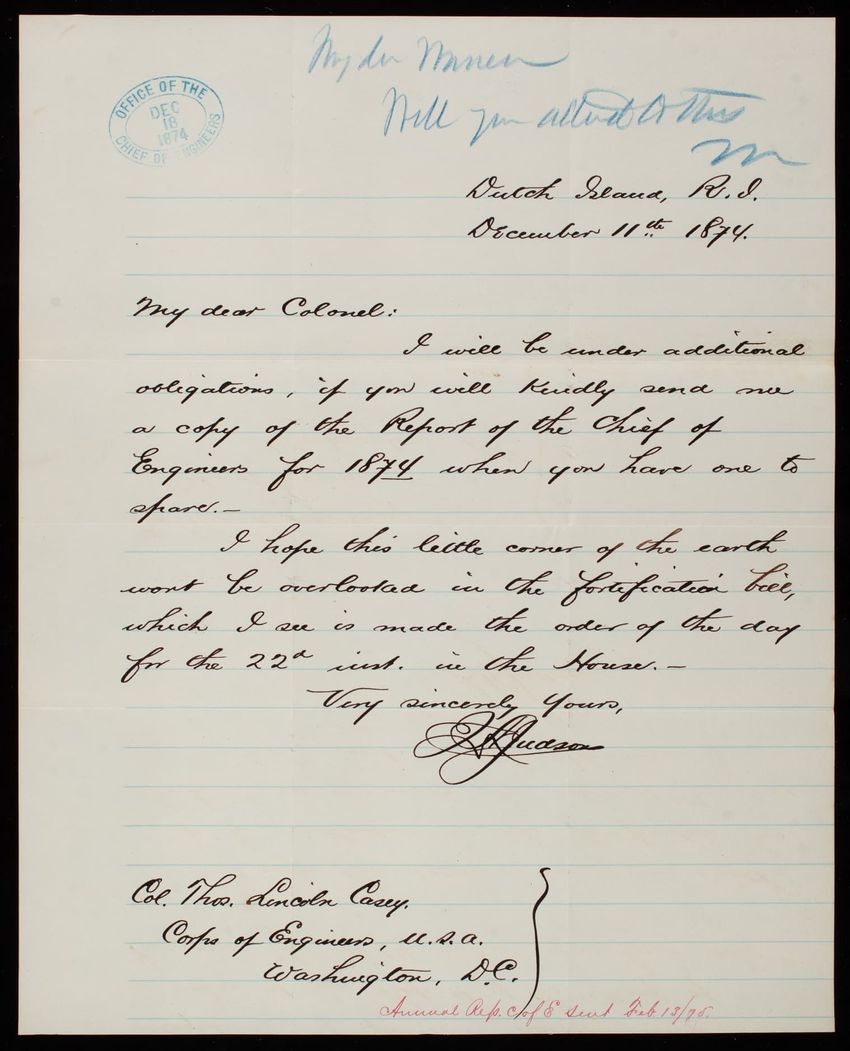 My dr
Will you attend to this
OFFICE OF THE
DEC
18
1874
CHIEF OF ENGINEERS
Dutch Island, R.I.
December 11th 1874.
My dear Colonel:
I will be under additional
obligations, if you will kindly send me
a copy of the Report of the Chief of
Engineers for 1874 when you have one to
spare.—
I hope this little corner of the earth
wont be overlooked in the fortification bill,
which I see is made the order of the day
for the 22d inst. in the House.—
Very sincerely Yours,
Judson
Col. Thos. Lincoln Casey.
Corps of Engineers, U.S.A.
Washington, D.C.
Annual Rep. C of E sent Feb 13/75.